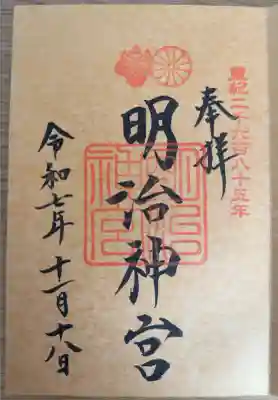 皇紀二千六百八十五年
奉拝
明治神宮
明治神宮
令和七年 十一月十八日